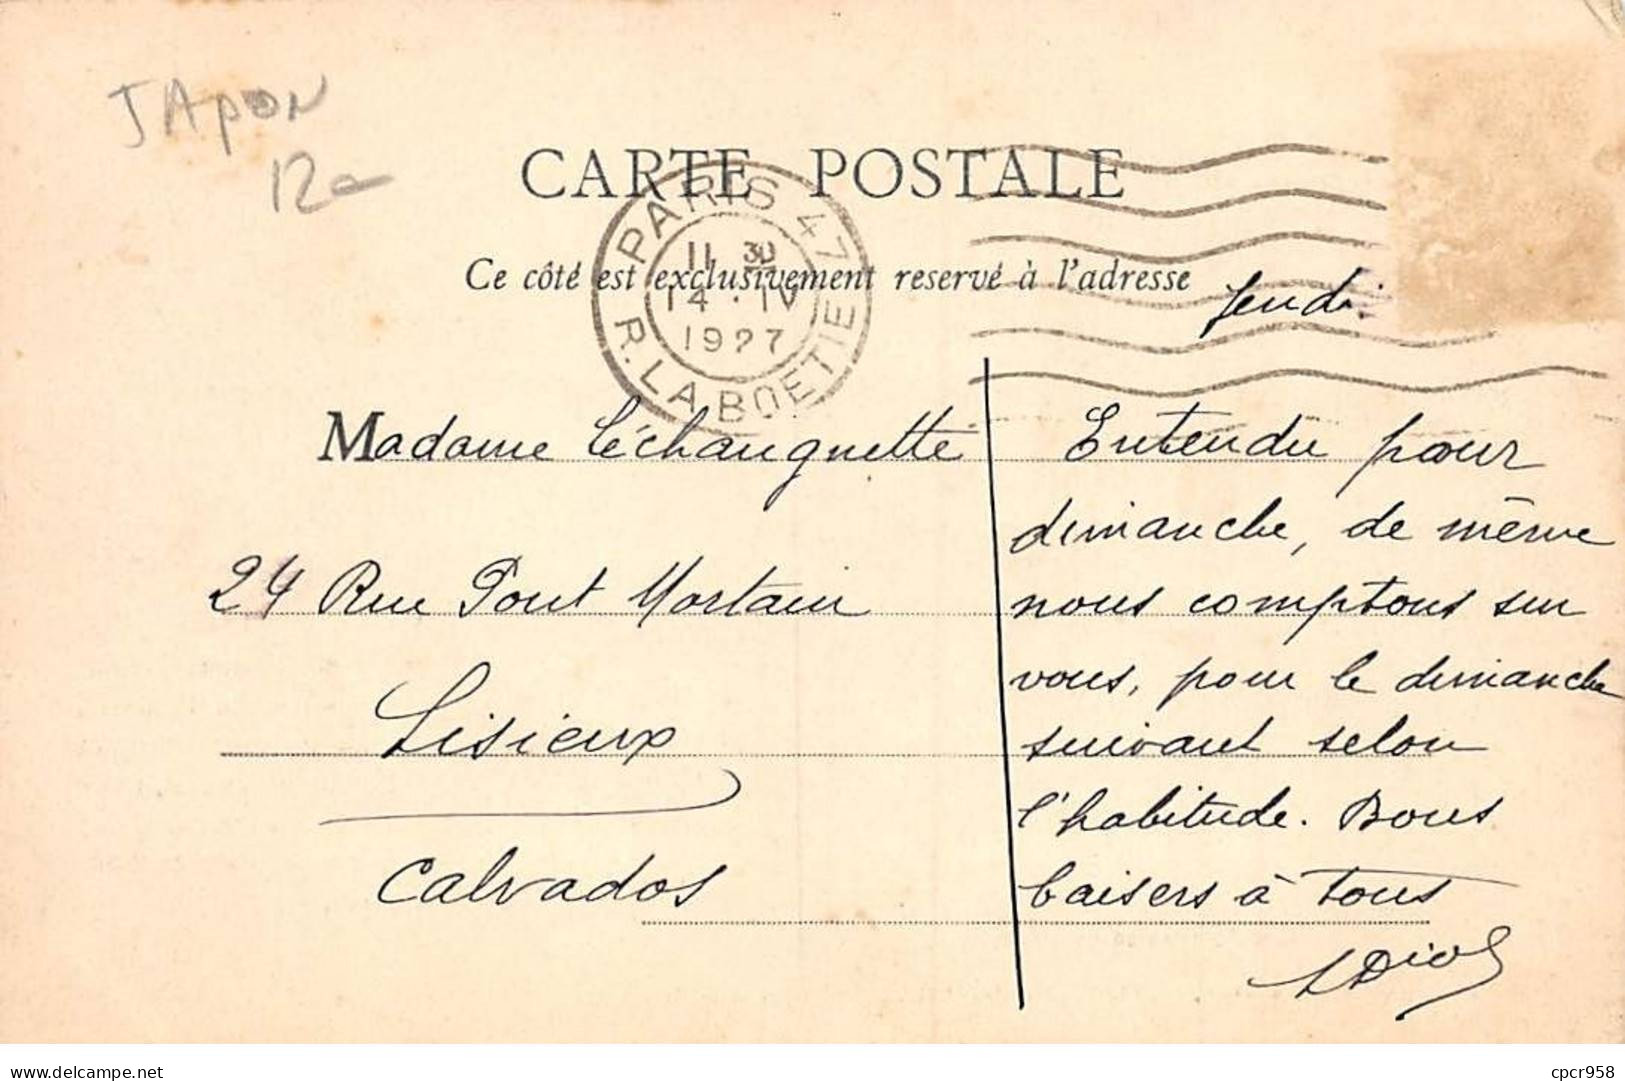 JApON
12e
CARTE POSTALE
PARIS 47
11 30
14 · IV
1927
R. LA BOETIE
Ce côté est exclusivement reservé à l'adresse
Jeudi.
Madame Léchauguette
24 Rue Pont Mortain
Lisieux
Calvados
Entendu pour
dimanche, de même
nous comptons sur
vous, pour le dimanche
suivant selon
l'habitude. Bons
baisers à tous
delcampe.net
cpcr958